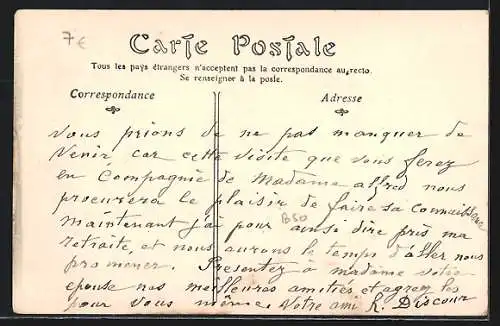 7€
Carte Postale
Tous les pays étrangers n'acceptent pas la correspondance au recto.
Se renseigner à la poste.
Correspondance
Adresse
vous prions de ne pas manquer de
venir car cette visite que vous ferez
en Compagnie de Madame alfred nous
procurera le plaisir de faire sa connaissance
maintenant j'ai pour ainsi dire pris ma
retraite, et nous aurons le temps d'aller nous
promener. Presentez a madame votre
epouse nos meilleures amitiés et agreez les
pour vous même. Votre ami R. Discour